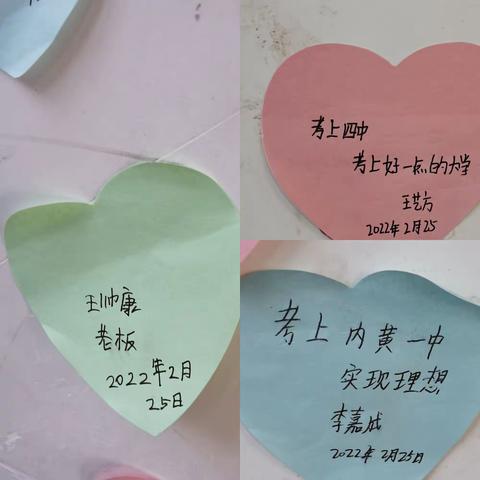 王帅康
老板
2022年2月
25日
考上四中
考上好一点的大学
王艺方
2022年2月25
考上内黄一中
实现理想
李嘉成
2022年2月25日